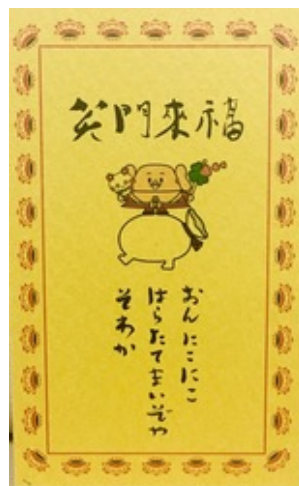 笑門来福
おんにこにこ
はらたてまいぞや
そわか